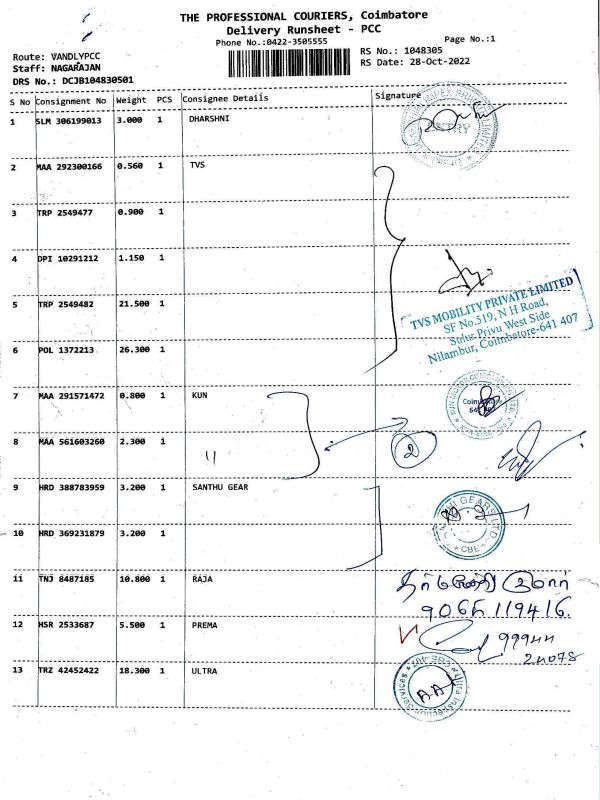 THE PROFESSIONAL COURIERS, Coimbatore
Delivery Runsheet - PCC
Phone No.:0422-3505555
Page No.:1
Route: VANDLYPCC
RS No.: 1048305
Staff: NAGARAJAN
RS Date: 28-Oct-2022
DRS No.: DCJB104830501
S No Consignment No Weight PCS Consignee Details Signature
1 SLM 306199013 3.000 1 DHARSHNI
2 MAA 292300166 0.560 1 TVS
3 TRP 2549477 0.900 1
4 DPI 10291212 1.150 1
TVS MOBILITY PRIVATE LIMITED
SF No.519, N H Road,
Sulur Privu West Side
Nilambur, Coimbatore-641 407
5 TRP 2549482 21.500 1
6 POL 1372213 26.300 1
7 MAA 291571472 0.800 1 KUN
Coimbatore
8 MAA 561603260 2.300 1 "
2
9 HRD 388783959 3.200 1 SANTHU GEAR
GEARS LTD.
CBE
10 HRD 369231879 3.200 1
11 TNJ 8487185 10.800 1 RAJA
குமார்
12 HSR 2533687 5.500 1 PREMA
99944
24078
13 TRZ 42452422 18.300 1 ULTRA
A.A